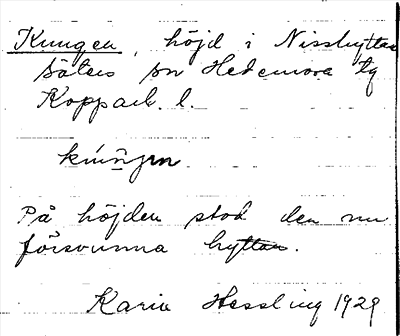 Kungen, höjd i Nisshyttan
Säters sn Hedemora tg
Kopparb. l.
kúŋ̀ən
På höjden stod den nu
försvunna hyttan.
Karin Hessling 1929